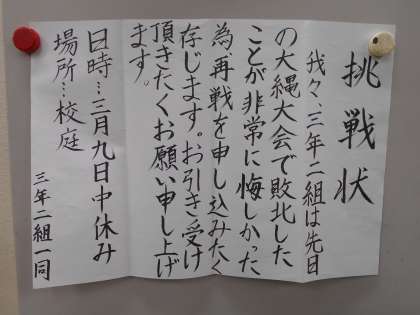 挑戦状
我々、三年二組は先日
の大縄大会で敗北した
ことが非常に悔しかった
為、再戦を申し込みたく
存じます。お引き受け
頂きたくお願い申し上げ
ます。
日時…三月九日中休み
場所…校庭
三年二組一同